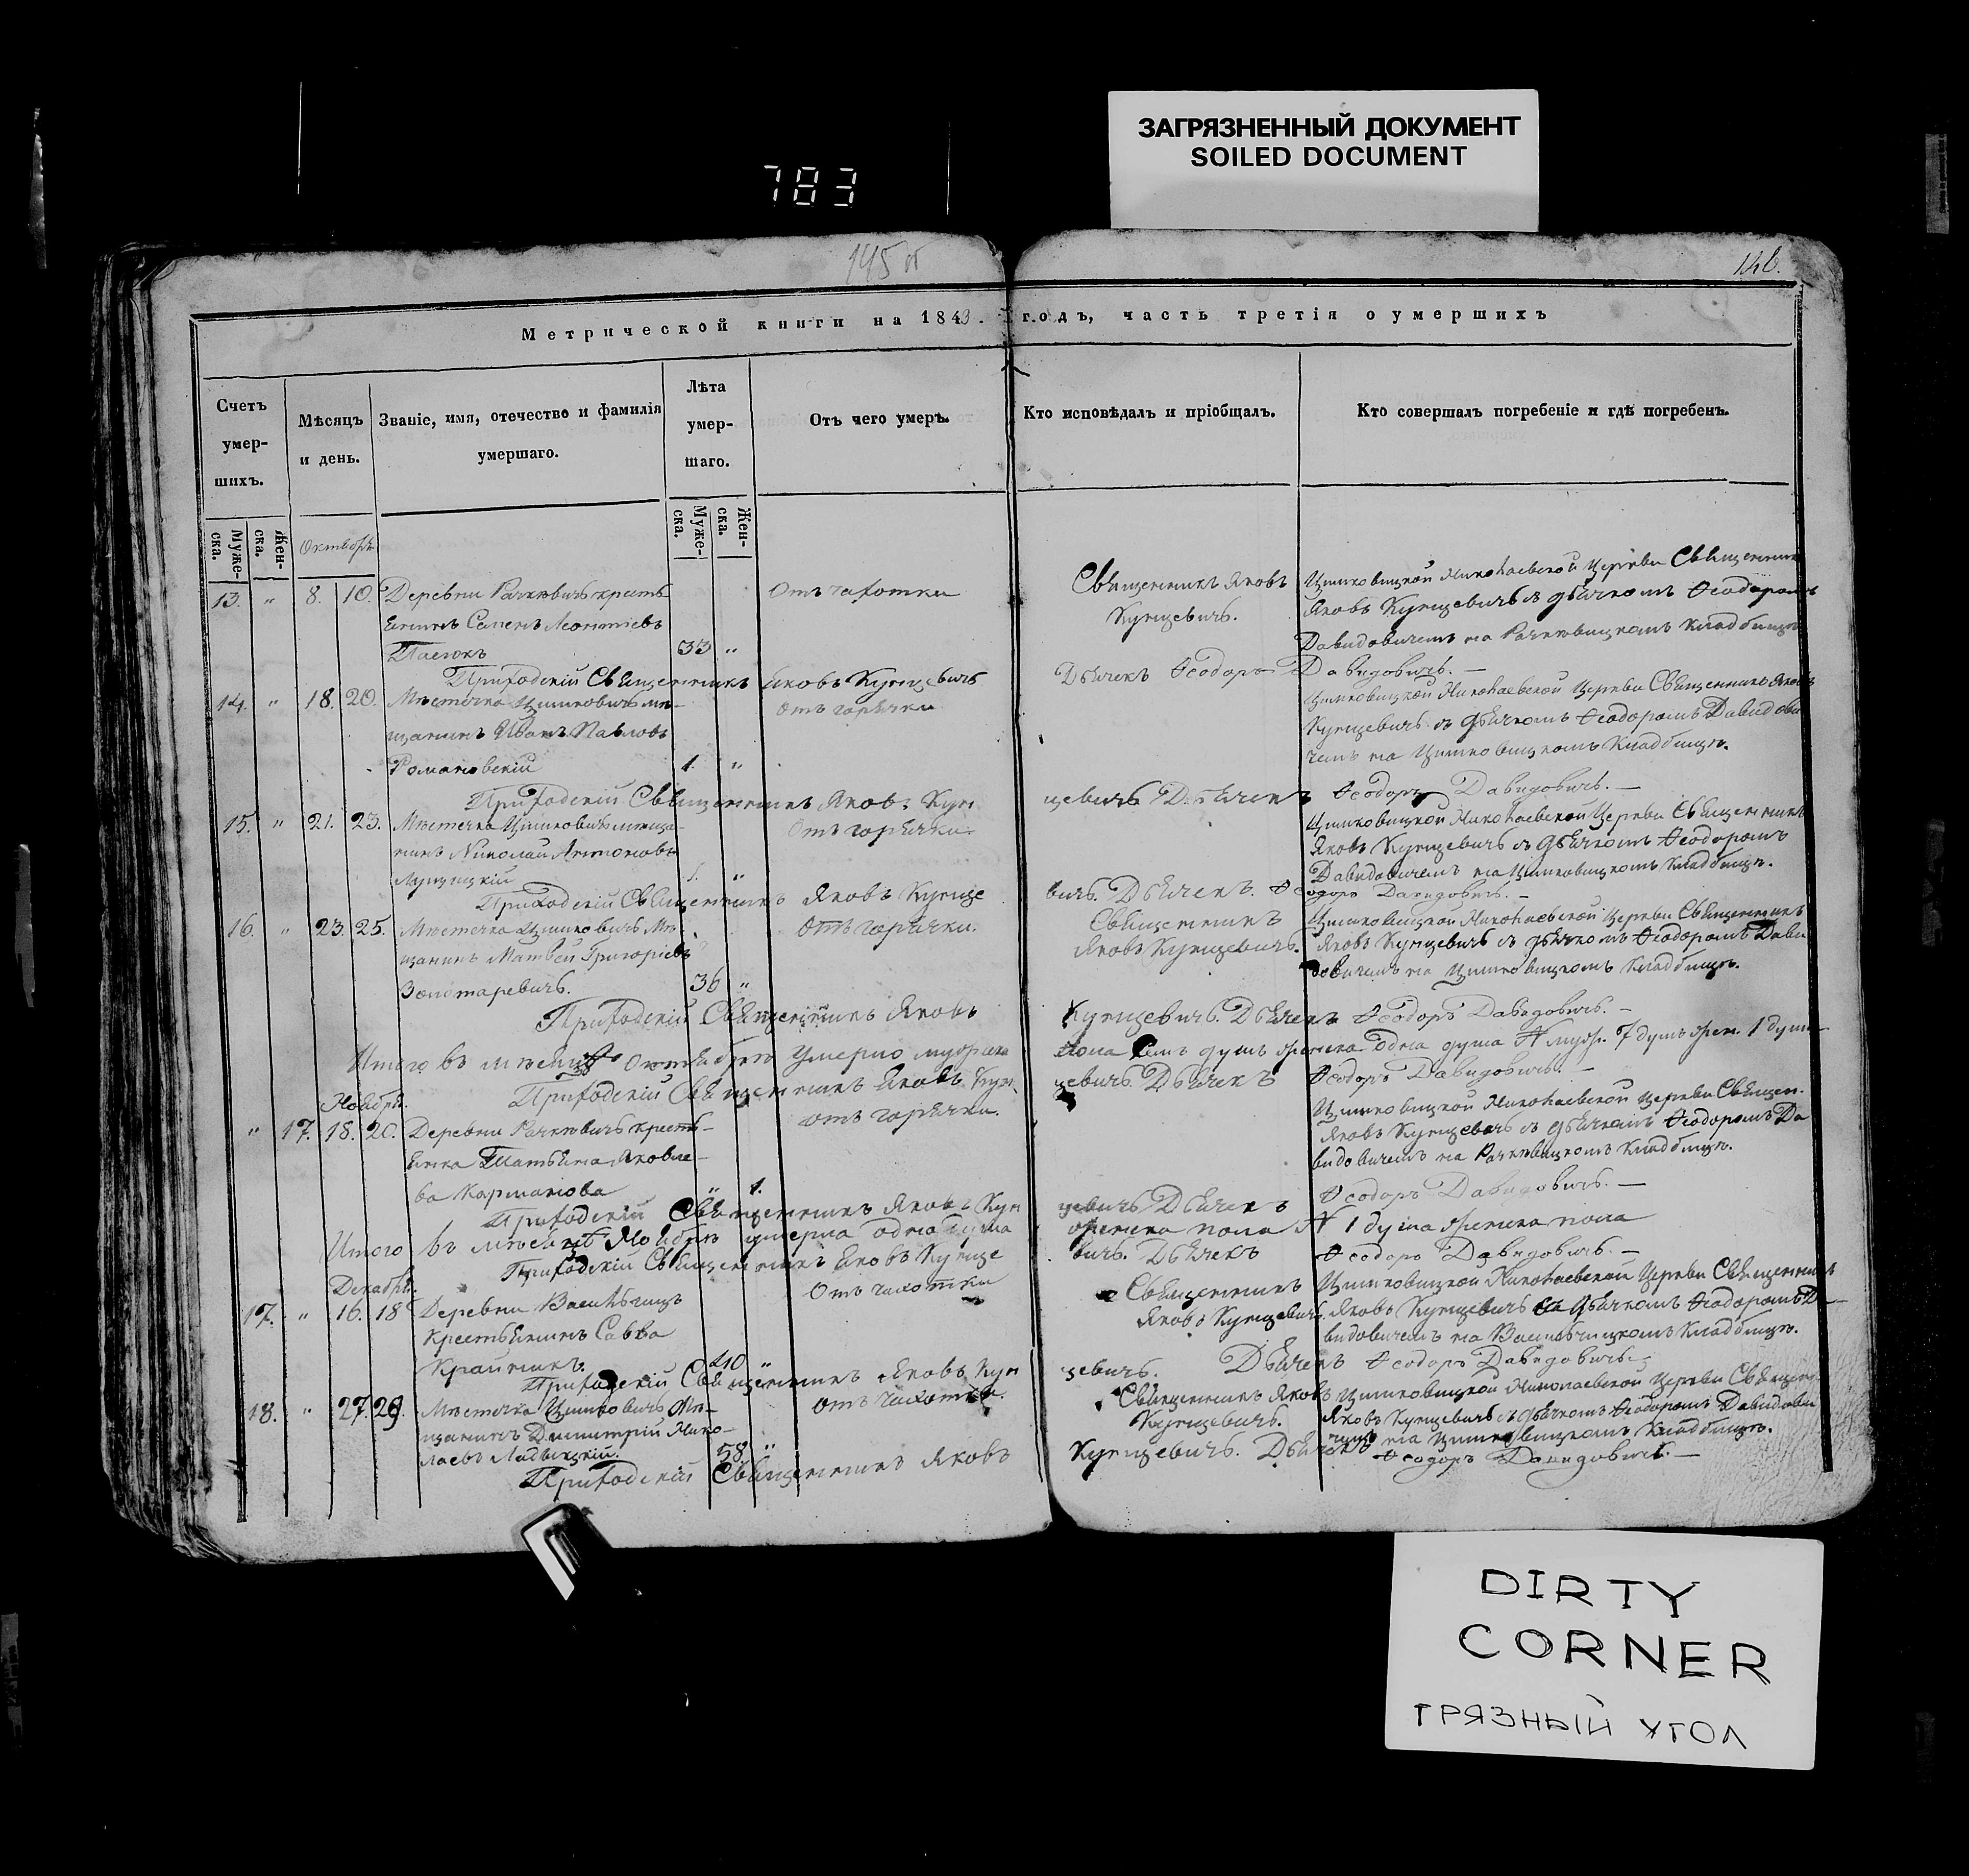 ЗАГРЯЗНЕННЫЙ ДОКУМЕНТ
SOILED DOCUMENT
783
145 об
146.
Метрической книги на 1843. годъ, часть третія о умершихъ
Счетъ умер-шихъ.
Мѣсяцъ и день.
Званіе, имя, отечество и фамилія умершаго.
Лѣта умер-шаго.
Отъ чего умеръ.
Кто исповѣдалъ и пріобщалъ.
Кто совершалъ погребеніе и гдѣ погребенъ.
Муже-ска.
Жен-ска.
Октябрь
Муже-ска.
Жен-ска.
13. " 8. 10. Деревни Рачкевичъ кресть
янинъ Семенъ Леонтіевъ
33 "
Отъ чахотки
Священникъ Яковъ
Кунцевичъ.
Цимковицкой Николаевской Церкви Священникъ
Яковъ Кунцевичъ съ дьячкомъ Ѳеодоромъ
Давидовичемъ на Рачкевицкомъ кладбищѣ
Приходскій Священникъ Яковъ Кунцевичъ Дьячекъ Ѳеодоръ Давидовичъ. —
14. " 18. 20. Мѣстечка Цимковичъ мѣ-
щанинъ Иванъ Павловъ
Романовскій 1. "
отъ горячки
Цимковицкой Николаевской Церкви Священникъ Яковъ
Кунцевичъ съ дьячкомъ Ѳеодоромъ Давидови
чемъ на Цимковицкомъ кладбищѣ.
Приходскій Священникъ Яковъ Кун цевичъ Дьячекъ Ѳеодоръ Давидовичъ. —
15. " 21. 23. Мѣстечка Цимковичъ мѣща-
нинъ Николай Антоновъ
1. "
Отъ горячки
Цимковицкой Николаевской Церкви Священникъ
Яковъ Кунцевичъ съ дьячкомъ Ѳеодоромъ
Давидовичемъ на Цимковицкомъ кладбищѣ.
Приходскій Священникъ Яковъ Кунце вичъ. Дьячекъ. Ѳеодоръ Давидовичъ. —
16. " 23. 25. Мѣстечка Цимковичъ Мѣ
щанинъ Матвей Григоріевъ
Золотаревичъ. 36 "
Отъ горячки.
Священникъ
Яковъ Кунцевичъ.
Цимковицкой Николаевской Церкви Священникъ
Яковъ Кунцевичъ съ дьячкомъ Ѳеодоромъ Дави
довичемъ на Цимковицкомъ кладбищѣ.
Приходскій Священникъ Яковъ Кунцевичъ. Дьячекъ Ѳеодоръ Давидовичъ. —
Итого въ мѣсяцѣ Октябрѣ умерло мужеска пола семъ душъ женска одна душа И муж. 7 душъ жен. 1 душа
Приходскій Священникъ Яковъ Кун цевичъ. Дьячекъ Ѳеодоръ Давидовичъ. —
Ноябрь.
" 17. 18. 20. Деревни Рачкевичъ кресть-
янка Татьяна Яковле-
ва Карманова " 1.
отъ горячки.
Цимковицкой Николаевской Церкви Священ.
Яковъ Кунцевичъ съ дьячкомъ Ѳеодоромъ Да
видовичемъ на Рачкевицкомъ кладбищѣ.
Приходскій Священникъ Яковъ Кун цевичъ Дьячекъ Ѳеодоръ Давидовичъ. —
Итого въ мѣсяцѣ Ноябрѣ умерла одна душа женска пола И 1 душа женска пола
Приходскій Священникъ Яковъ Кунце вичъ. Дьячекъ Ѳеодоръ Давидовичъ. —
Декабрь.
17. " 16. 18 Деревни
Крестьянинъ Савва
Крайникъ. 40 "
Отъ чахотки
Священникъ
Яковъ Кунцевичъ.
Цимковицкой Николаевской Церкви Священникъ
Яковъ Кунцевичъ съ дьячкомъ Ѳеодоромъ Да-
видовичемъ на кладбищѣ.
Приходскій Священникъ Яковъ Кун цевичъ. Дьячекъ Ѳеодоръ Давидовичъ.
18. " 27. 29. Мѣстечка Цимковичъ Мѣ-
щанинъ Димитрій Нико-
лаевъ 58. "
отъ чахотки.
Священникъ Яковъ
Кунцевичъ.
Цимковицкой Николаевской Церкви Священ.
Яковъ Кунцевичъ съ дьячкомъ Ѳеодоромъ Давидови
чемъ на Цимковицкомъ кладбищѣ.
Приходскій Священникъ Яковъ Кунцевичъ. Дьячекъ Ѳеодоръ Давидовичъ. —
DIRTY
CORNER
ГРЯЗНЫЙ УГОЛ